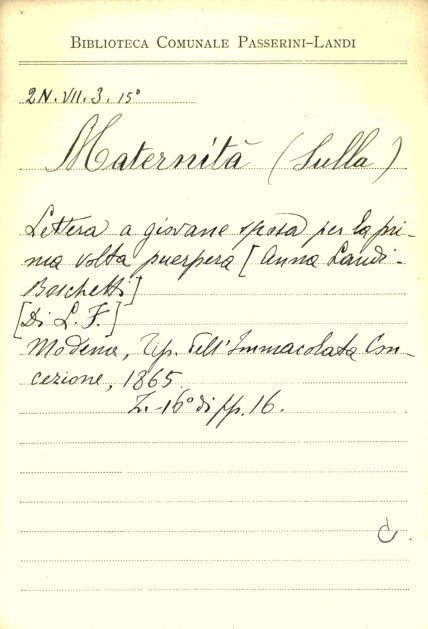 BIBLIOTECA COMUNALE PASSERINI-LANDI
2N.VII.3.15°
Maternità (Sulla)
Lettera a giovane sposa per la pri-
ma volta puerpera [Anna Landi-
Boschetti]
[Di L. F.]
Modena, Tip. dell'Immacolata Con-
cezione, 1865.
Z.-16° di pp. 16.